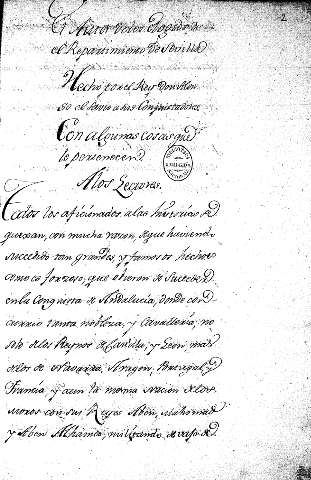 2
el Repartimiento de Sevilla
Hecho por el Rey Don Alon
so el Savio a los Conquistadores
Con algunas cosas que
le pertenecen
A los Lectores.
Todos los aficionados a las historias se
quexan, con mucha razon, de que haviendo
succedido tan grandes, y famosos hechos
como es forzoso, que
en la Conquista de Andalucia, donde con
currio tanta nobleza, y Cavalleria, no
solo de los Reynos de Castilla, y Leon, mas
de los de Navarra, Aragon, Portugal, y
Francia, y aun la misma nacion de los
Moros con sus Reyes Aben, Mahomad
y Aben Alhamar, militando